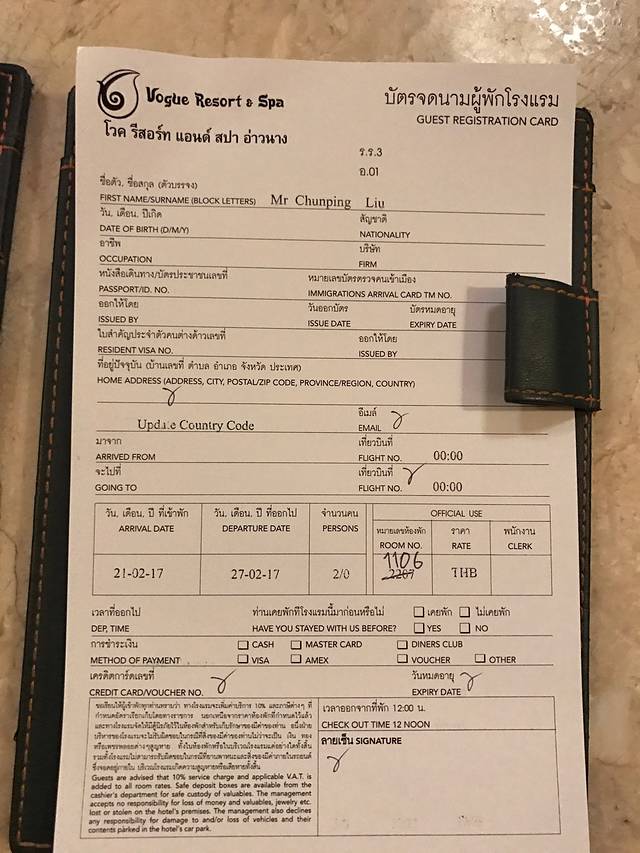 Vogue Resort & Spa
บัตรจดนามผู้พักโรงแรม
GUEST REGISTRATION CARD
โวค รีสอร์ท แอนด์ สปา อ่าวนาง
ร.ร.3
อ.01
ชื่อตัว, ชื่อสกุล (ตัวบรรจง)
FIRST NAME/SURNAME (BLOCK LETTERS) Mr Chunping Liu
วัน, เดือน, ปีเกิด สัญชาติ
DATE OF BIRTH (D/M/Y) NATIONALITY
อาชีพ บริษัท
OCCUPATION FIRM
หนังสือเดินทาง/บัตรประชาชนเลขที่ หมายเลขบัตรตรวจคนเข้าเมือง
PASSPORT/ID. NO. IMMIGRATIONS ARRIVAL CARD TM NO.
ออกให้โดย วันออกบัตร บัตรหมดอายุ
ISSUED BY ISSUE DATE EXPIRY DATE
ใบสำคัญประจำตัวคนต่างด้าวเลขที่ ออกให้โดย
RESIDENT VISA NO. ISSUED BY
ที่อยู่ปัจจุบัน (บ้านเลขที่ ตำบล อำเภอ จังหวัด ประเทศ)
HOME ADDRESS (ADDRESS, CITY, POSTAL/ZIP CODE, PROVINCE/REGION, COUNTRY)
อีเมล์
Update Country Code EMAIL
มาจาก เที่ยวบินที่
ARRIVED FROM FLIGHT NO. 00:00
จะไปที่ เที่ยวบินที่
GOING TO FLIGHT NO. 00:00
วัน, เดือน, ปี ที่เข้าพัก วัน, เดือน, ปี ที่ออกไป จำนวนคน OFFICIAL USE
ARRIVAL DATE DEPARTURE DATE PERSONS
หมายเลขห้องพัก ราคา พนักงาน
ROOM NO. RATE CLERK
1106
21-02-17 27-02-17 2/0 2207 THB
เวลาที่ออกไป ท่านเคยพักที่โรงแรมนี้มาก่อนหรือไม่ เคยพัก ไม่เคยพัก
DEP, TIME HAVE YOU STAYED WITH US BEFORE? YES NO
การชำระเงิน CASH MASTER CARD DINERS CLUB
METHOD OF PAYMENT VISA AMEX VOUCHER OTHER
เครดิตการ์ดเลขที่ วันหมดอายุ
CREDIT CARD/VOUCHER NO. EXPIRY DATE
เวลาออกจากที่พัก 12:00 น.
CHECK OUT TIME 12 NOON
ลายเซ็น SIGNATURE
Guests are advised that 10% service charge and applicable V.A.T. is
added to all room rates. Safe deposit boxes are available from the
cashier's department for safe custody of valuables. The management
accepts no responsibility for loss of money and valuables, jewelry etc.
lost or stolen on the hotel's premises. The management also declines
any responsibility for damage to and/or loss of vehicles and their
contents parked in the hotel's car park.